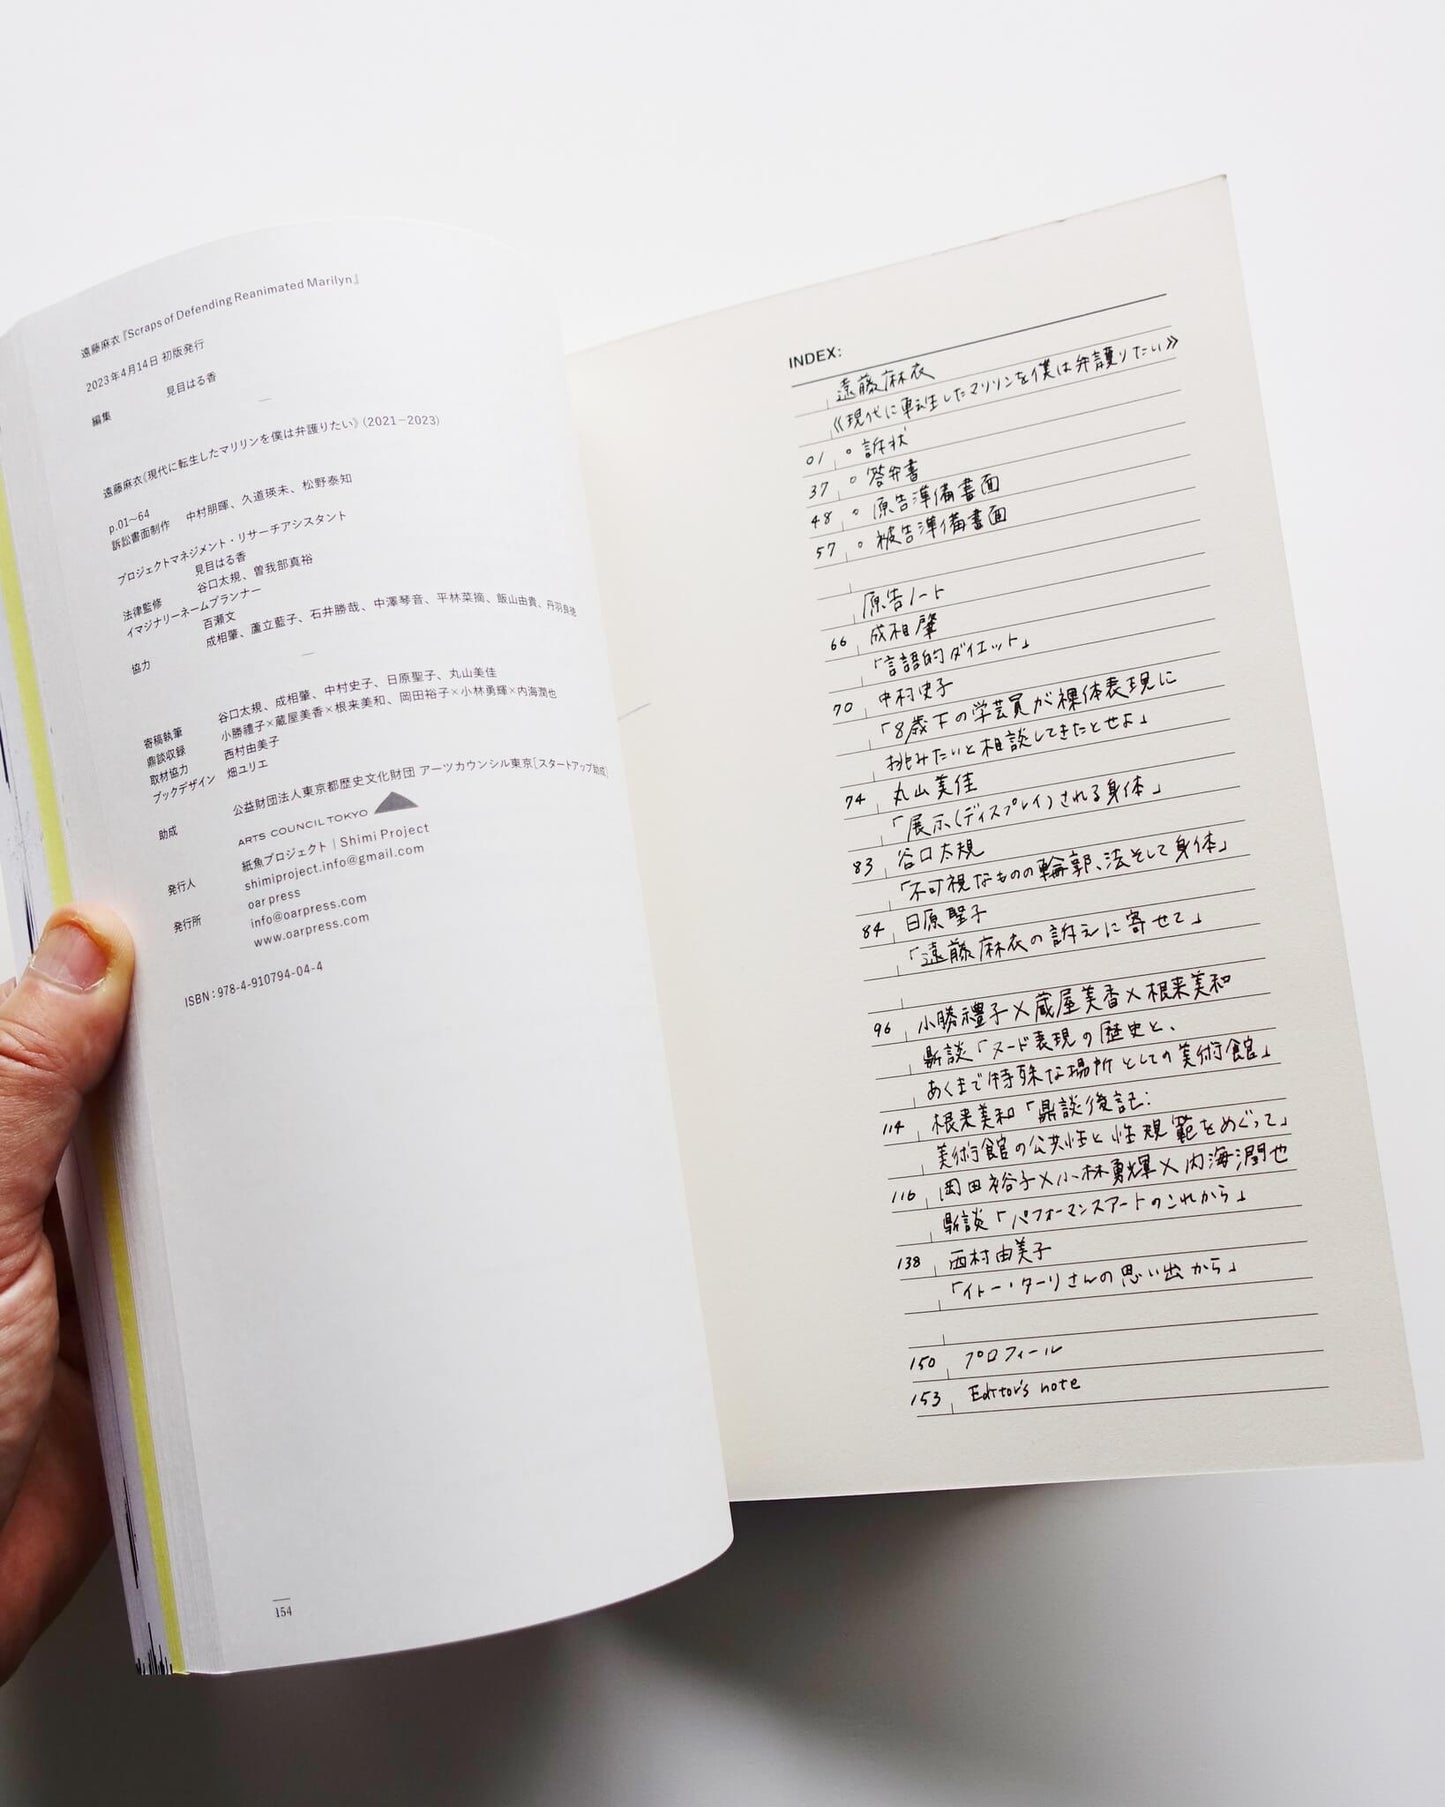 遠藤麻衣『Scraps of Defending Reanimated Marilyn』
2023年4月14日 初版発行
編集 見目はる香
遠藤麻衣《現代に転生したマリリンを僕は弁護りたい》(2021–2023)
p.01~64
訴訟書面制作 中村朋暉、久道瑛未、松野泰知
プロジェクトマネジメント・リサーチアシスタント
見目はる香
法律監修 谷口太規、曽我部真裕
イマジナリーネームプランナー
百瀬文
協力 成相肇、蘆立藍子、石井勝哉、中澤琴音、平林菜摘、飯山由貴、丹羽良徳
寄稿執筆 谷口太規、成相肇、中村史子、日原聖子、丸山美佳
鼎談収録 小勝禮子×蔵屋美香×根来美和、岡田裕子×小林勇輝×内海潤也
取材協力 西村由美子
ブックデザイン 畑ユリエ
助成 公益財団法人東京都歴史文化財団 アーツカウンシル東京[スタートアップ助成]
ARTS COUNCIL TOKYO
発行人 紙魚プロジェクト | Shimi Project
shimiproject.info@gmail.com
発行所 oar press
info@oarpress.com
www.oarpress.com
ISBN: 978-4-910794-04-4
154
INDEX:
遠藤麻衣
《現代に転生したマリリンを僕は弁護りたい》
01 ○訴状
37 ○答弁書
48 ○原告準備書面
57 ○被告準備書面
原告ノート
66 成相肇
「言語的ダイエット」
70 中村史子
「8歳下の学芸員が裸体表現に
挑みたいと相談してきたとせよ」
74 丸山美佳
「展示(ディスプレイ)される身体」
83 谷口太規
「不可視なものの輪郭、法そして身体」
84 日原聖子
「遠藤麻衣の訴えに寄せて」
96 小勝禮子×蔵屋美香×根来美和
鼎談「ヌード表現の歴史と、
あくまで特殊な場所としての美術館」
114 根来美和「鼎談後記:
美術館の公共性と性規範をめぐって」
116 岡田裕子×小林勇輝×内海潤也
鼎談「パフォーマンスアートのこれから」
138 西村由美子
「イトー・ターリさんの思い出から」
150 プロフィール
153 Editor's note